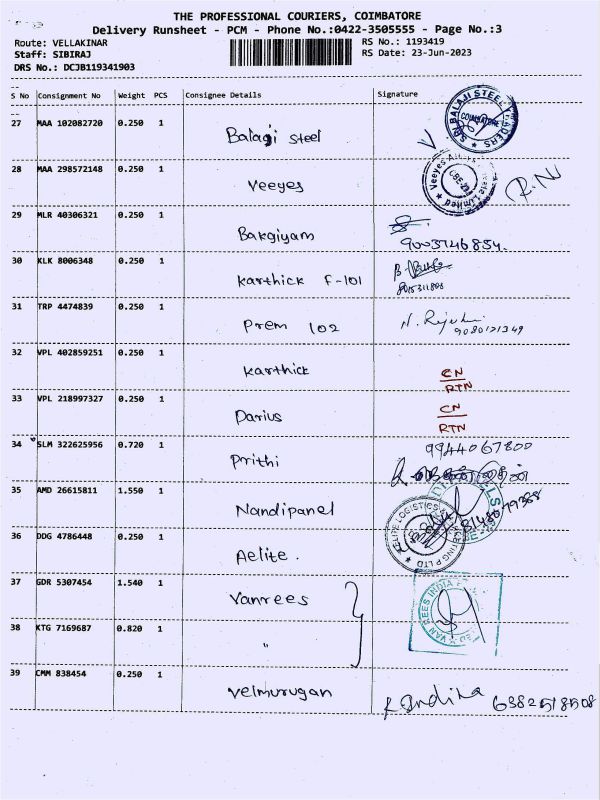 THE PROFESSIONAL COURIERS, COIMBATORE
Delivery Runsheet - PCM - Phone No.:0422-3505555 - Page No.:3
Route: VELLAKINAR RS No.: 1193419
Staff: SIBIRAJ RS Date: 23-Jun-2023
DRS No.: DCJB119341903
S No Consignment No Weight PCS Consignee Details Signature
27 MAA 102082720 0.250 1 Balagi steel SRI BALAJI STEEL TRADERS COIMBATORE
28 MAA 298572148 0.250 1 Veeyes Veeyes Limited
29 MLR 40306321 0.250 1 Bakgiyam 9003746854.
30 KLK 8006348 0.250 1 Karthick F-101
31 TRP 4474839 0.250 1 Prem 102 9080121349
32 VPL 402859251 0.250 1 Karthick CN RTN
33 VPL 218997327 0.250 1 Darius CN RTN
34 SLM 322625956 0.720 1 Prithi 9944067800
35 AMD 26615811 1.550 1 Nandipanel
36 DDG 4786448 0.250 1 Aelite. AELITE LOGISTICS
37 GDR 5307454 1.540 1 Vanrees VAN REES INDIA
38 KTG 7169687 0.820 1 "
39 CMM 838454 0.250 1 Velmurugan